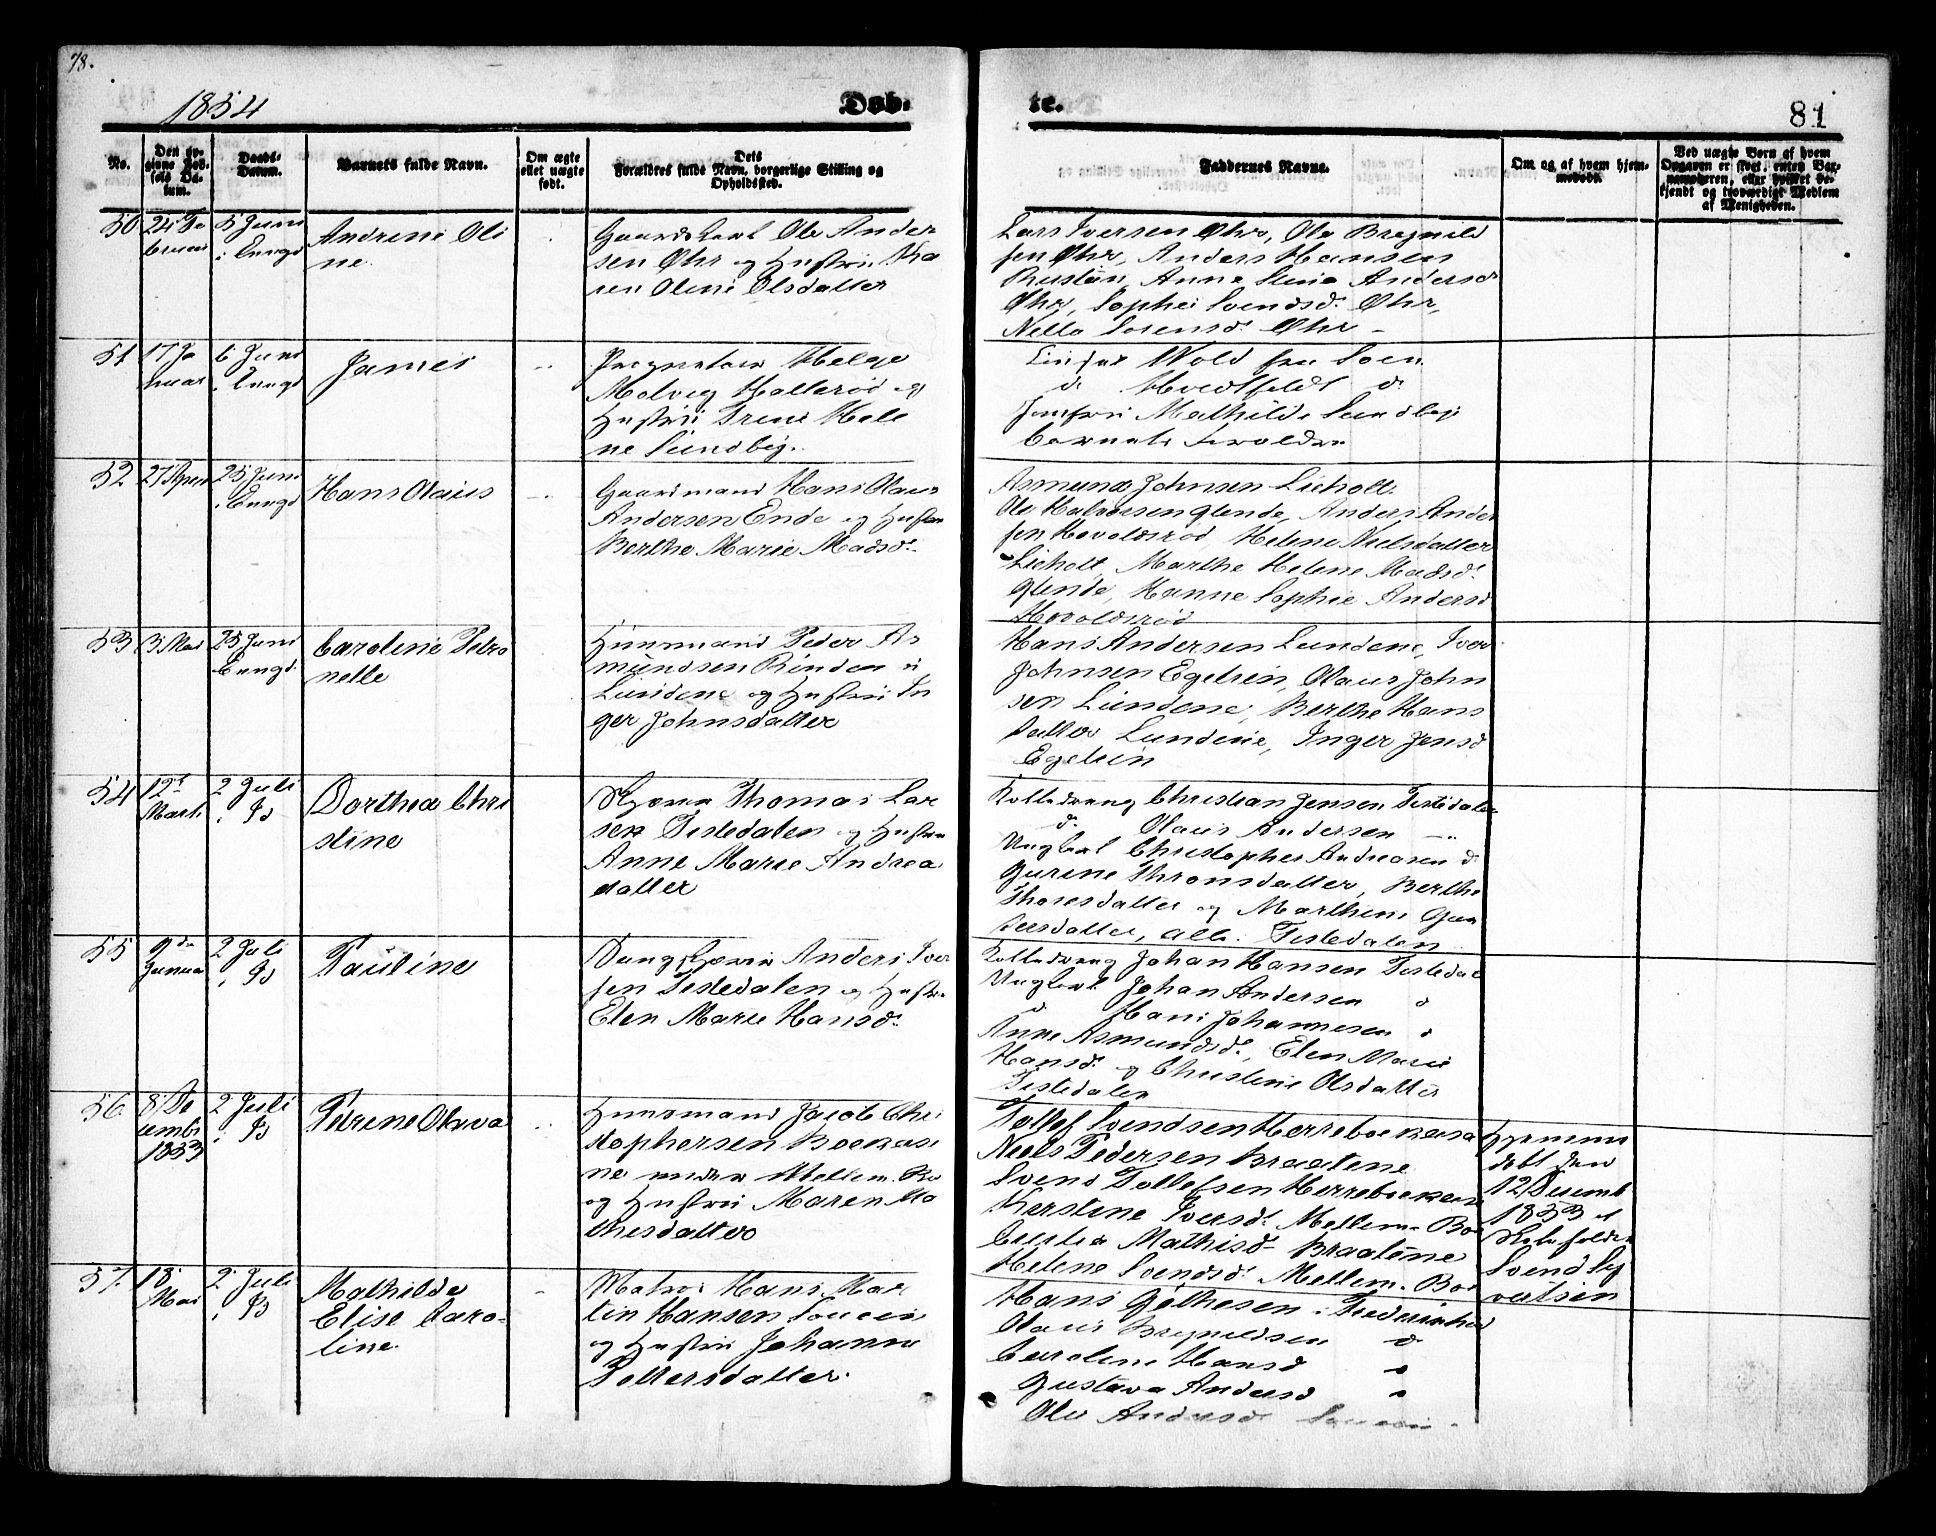 78.
1854
Døb-
te.
81
No.
Den opgivne Fødsels Datum.
Daabs-Datum.
Barnets fulde Navn.
Om ægte eller uægte født.
Dets Forældres fulde Navn, borgerlige Stilling og Opholdssted.
Faddernes Navne.
Om og af hvem hjemmedøbt.
Ved uægte Børn af hvem Opgaven er skeet, enten Barnemoderen, eller hvilket bekjendt og troværdigt Medlem af Menigheden.
50
5 Juni
Andrine Oli
ne
Ole Ander
sen Øhr og Hustru Ka
ren Oline Olsdatter
Lars Iversen Øhr, Ole Brynild
sen Øhr, Anders Hansen
Anne Anders
Øhr, Sophie Svendsd. Øhr,
Sørensd. Øhr -
51
17 Ja
nuar
6 Juni
James
Helge
Molvig Hallerød og
Hustru Irene Hele
ne Sundbÿ.
Wold fra
d. d.
Jomfru Mathilde Sundbye
Barnets Forældre
52
27 April
25 Juni
Hans Olaus
Gaardmand Hans Olaus
Andersen Ende og Hustru
Berthe Marie Madsd.
Asmund Johnsen Lieholt
Ole Halvorsen Glende, Anders Ander
sen Hovaldsrød Helene Nielsdatter
Lieholt, Marthe Helene Madsd.
Glende, Hanne Sophie Andersd
Hovaldsrød
53
3 Mai
25 Juni
Caroline Petro
nelle
Huusmand Peder As
mundsen Rinden u
Lundene og Hustru In
ger Johnsdatter
Hans Andersen Lundene, Iver
Johnsen Egelien, Olaus John
sen Lundene, Berthe Hans
datter Lundene, Inger Jensd
Egelien
54
12t
Marts
2 Juli
Dorthea Chri
stine
Thomas Lar
sen Tistedalen og Hustru
Anne Marie Andrea
datter
Christian Jensen Tistedalen
d. Olaus Andersen
Ungkarl Christopher Andreasen d.
Gurine Thronsdatter, Berthe
Thoresdatter og Marthine Gun
dersdatter, alle Tistedalen
55
9de
Januar
2 Juli
Pauline
Anders Iver
sen Tistedalen og Hustru
Elen Marie Hansd.
Johan Hansen Tistedal
Ungkarl Johan Andersen d
d Hans Johannesen d
Anne Asmundsd. Elen Marie
Hansd. og Christine Olsdatter
Tistedalen
56
8 De
cemb
1853
2 Juli
Petrine Olava
Huusmand Jacob Chri
stophersen Boekase
ne under Mellem Bo
og Hustru Maren Ma
thisdatter
Tollef Svendsen Herreboekasa
Niels Pedersen Braatene
Svend Tollefsen Herreboekasa
Kirstine Iversd. Mellem-Boe
Mathisd. Braatene
Helene Svendsd. Mellem-Boe
Hjemme
døbt den
12 Desemb
1853 af
Skoleholder
Svend Sy
vertsen
57
18
Mai
2 Juli
Mathilde
Elise Caro-
line.
Matros Hans Mar
tin Hansen
og Hustru Johanne
Pettersdatter.
Hans
Olaus Brynildsen d
Caroline Hansd d
Gustava Andersd d
Ole Andersd